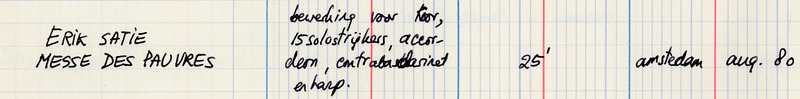 bewerking voor koor,
ERIK SATIE 15 solostrijkers, accor-
MESSE DES PAUVRES deon, contrabasklarinet 25' amsterdam aug. 80
en harp.